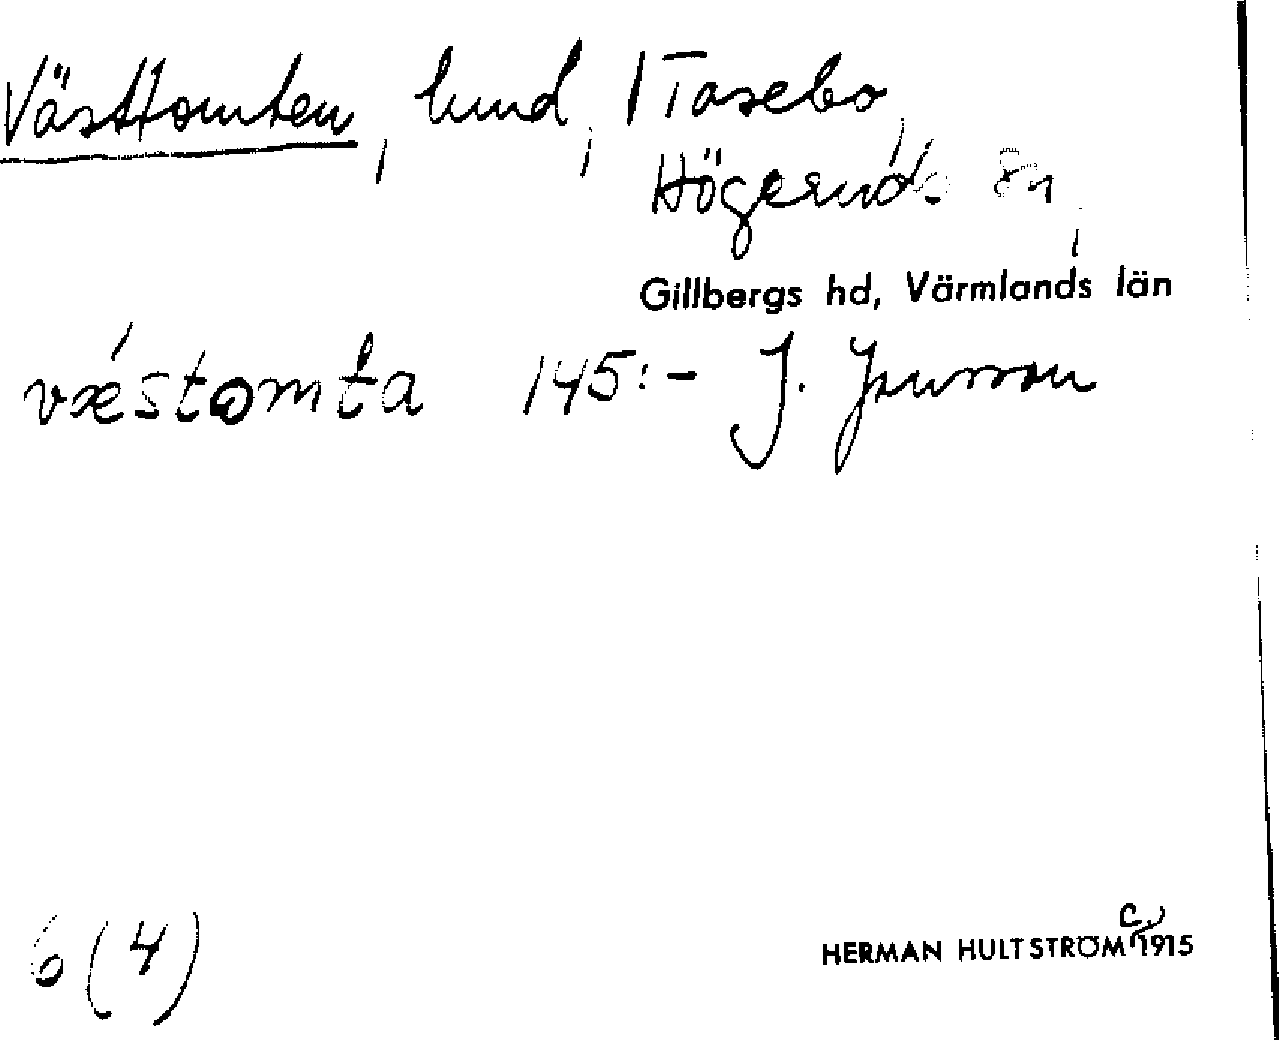 Västtomten, lund, 1 Tasebo,
Högeruds sn,
Gillbergs hd, Värmlands län
vǽstomta 145:- J. Jonsson
6 (4)
HERMAN HULTSTRÖM c. 1915